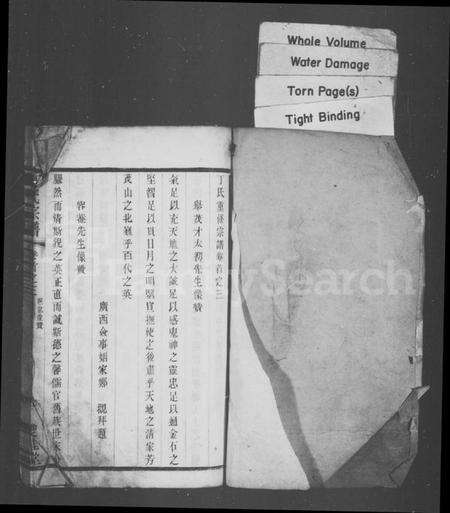 Whole Volume
Water Damage
Torn Page(s)
Tight Binding
丁氏重修宗譜卷首之三
舉茂才太初先生像贊
氣足以充天地之大誠足以感鬼神之靈忠足以通金石之
堅智足以貫日月之明關宣撫使之後肅乎天地之清家芳
茂山之北巍乎百代之英
廣西僉事姻家鄭 拜題
容菴先生像贊
儼然而清斯説之英正直而誠斯德之馨儒官舊族世家
像贊